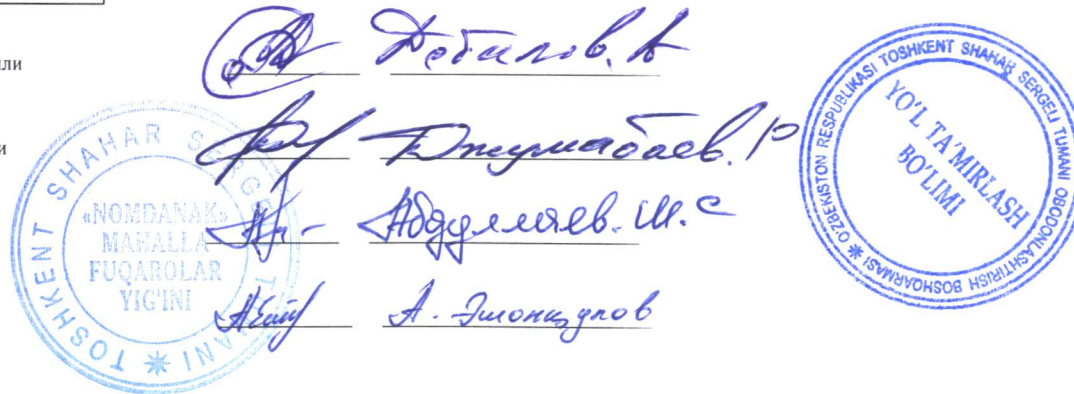 или
Джумабаев. Р
и
Абдуллаев. Ш. С
TOSHKENT SHAHAR SERGELI TUMANI
«NOMDANAK»
MAHALLA
FUQAROLAR
YIG'INI
O'ZBEKISTON RESPUBLIKASI TOSHKENT SHAHAR SERGELI TUMANI OBODONLASHTIRISH BOSHQARMASI
YO'L TA'MIRLASH
BO'LIMI